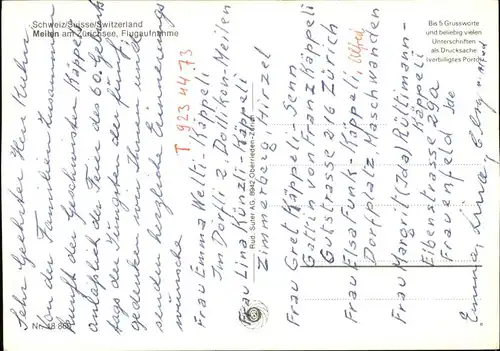 Schweiz/Suisse/Switzerland
Meilen am Zürichsee, Flugaufnahme
Bis 5 Grussworte
und beliebig vielen
Unterschriften
als Drucksache
(verbilligtes Porto)
Sehr Geehrter Herr Kuhn
Von der Familien Zusammen
kunft der Geschwister Käppeli
anlässlich der Feier des 60. Geburts
tags der Jüngsten der fünf,
gedenken wir Ihnen und
senden herzliche Erinnerungs
wünsche
T 923 44 73
Frau Emma Welti-Käppeli
Im Dörfli 2 Dollikon-Meilen
Frau Lina Künzli-Käppeli
Zimmerberg, Hirzel
Rüd. Suter AG, 8942 Oberrieden-Zürich
Frau Gret Käppeli-Senn
Gattin von Franz Käppeli
Gutstrasse 216 Zürich
Frau Elsa Funk-Käppeli, Alfred
Dorfplatz Maschwanden
Frau Margrit (Ida) Rüttimann-
Käppeli
Eibenstrasse 29a
Frauenfeld
Emma, Lina, Elsa und